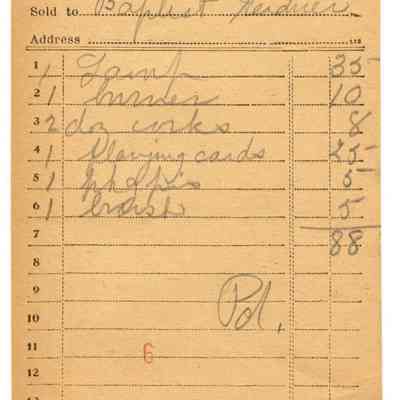 Sold to Baptist
Address
1 1 Lamp 35
2 1 burner 10
3 2 doz corks 8
4 1 Playing cards 25
5 1 5
6 1 5
7 88
8
9
10 Pd.
11 6
12